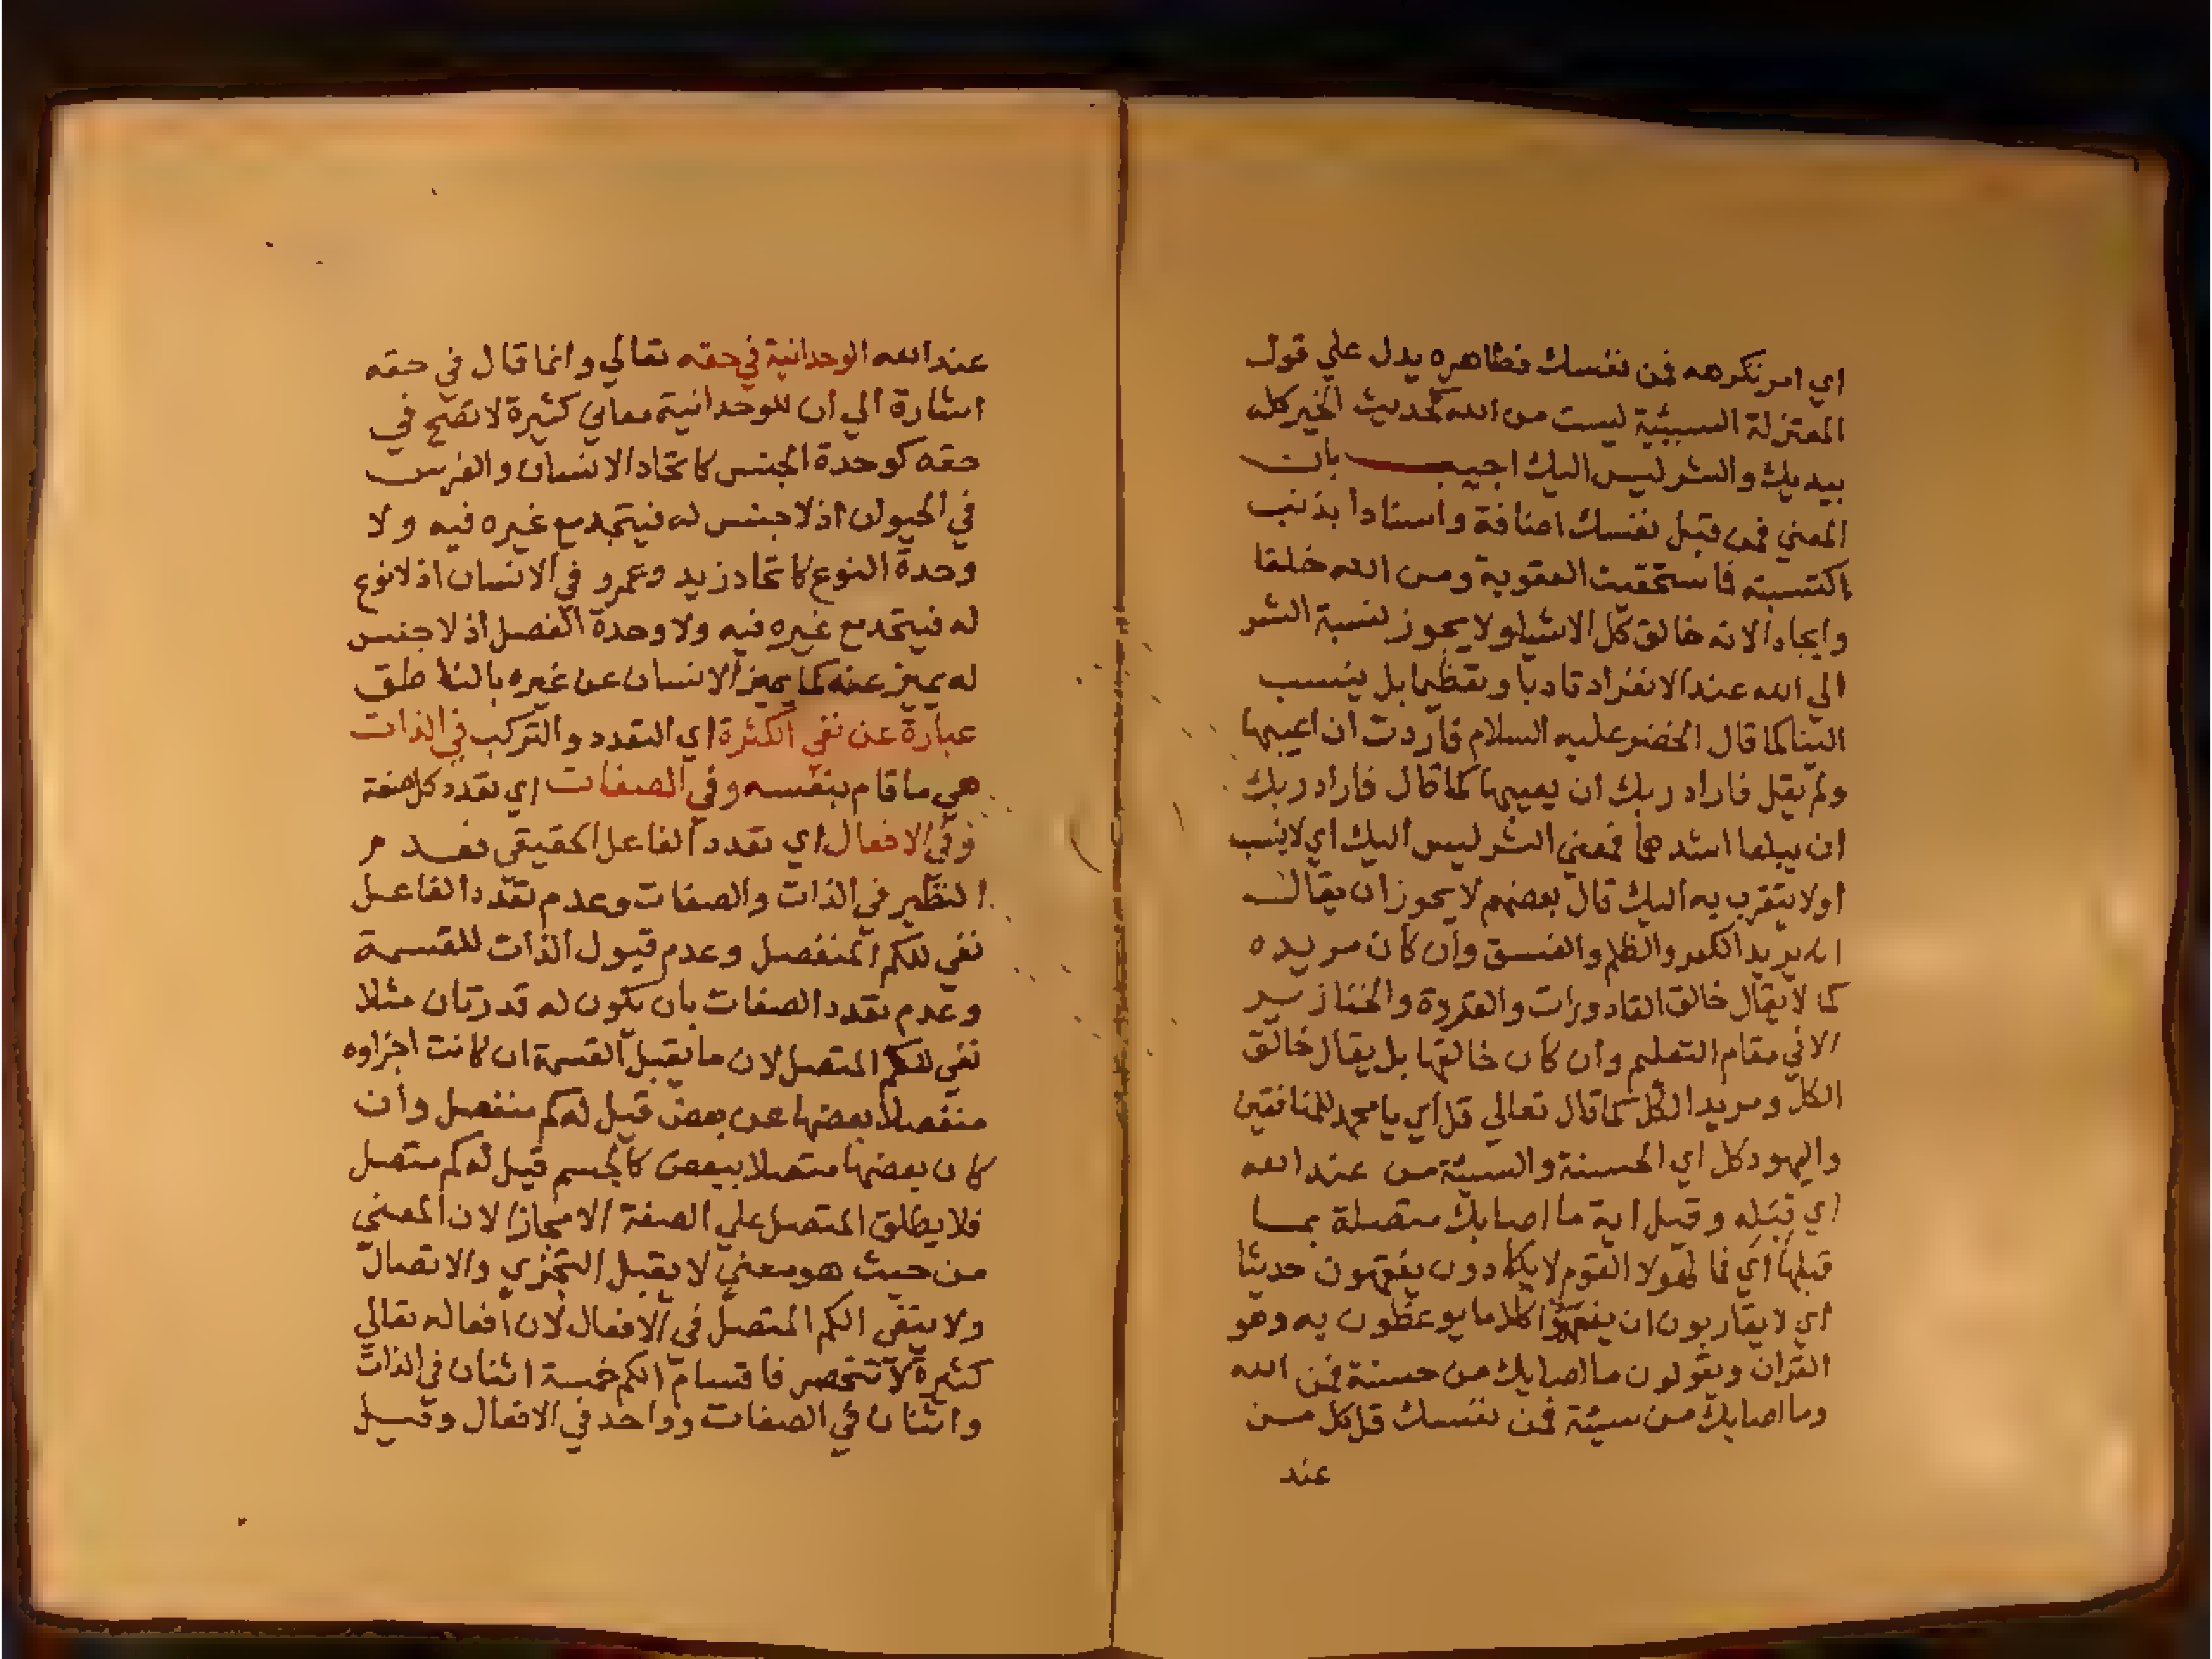 اي امر نكرهه فمن نفسك فظاهره يدل علي قول
المعتزلة السيئة ليست من الله كحديث الخير كله
بيديك والشر ليس اليك اجيب بان
المعني فمن قبل نفسك اضافة واسنادا بذنب
اكتسبته فاستحققت العقوبة ومن الله خلقا
وايجادا لانه خالق كل الاشيا ولا يجوز نسبة الشر
الي الله عند الانفراد تادبا وتعظيما بل ينسب
الينا كما قال الخضر عليه السلام فاردت ان اعيبها
ولم يقل فاراد ربك ان يعيبها كما قال فاراد ربك
ان يبلغا اشدهما فمعني الشر ليس اليك اي لا ينسب
او لا يتقرب به اليك قال بعضهم لا يجوز ان يقال
انه يريد الكفر والظلم والفسق وان كان مريده
كما لا يقال خالق القاذورات والقردة والخنازير
الا في مقام التعليم وان كان خالقها بل يقال خالق
الكل ومريد الكل كما قال تعالي قل اي يا محمد للمنافقين
واليهود كل اي الحسنة والسيئة من عند الله
اي قبله وقيل اية ما اصابك متصلة بما
قبلها اي فما لهولا القوم لا يكادون يفقهون حديثا
اي لا يقاربون ان يفقهوا كلاما يوعظون به وهو
القران ويقولون ما اصابك من حسنة فمن الله
وما اصابك من سيئة فمن نفسك قل كل من
عند
عند الله الوحدانية في حقه تعالي وانما قال في حقه
اشارة الي ان للوحدانية معاني كثيرة لا تصح في
حقه كوحدة الجنس كاتحاد الانسان والفرس
في الحيوان اذ لا جنس له فيتحد مع غيره فيه ولا
وحدة النوع كاتحاد زيد وعمرو في الانسان اذ لا نوع
له فيتحد مع غيره فيه ولا وحدة الفصل اذ لا جنس
له يميز عنه كما يميز الانسان عن غيره بالناطق
عبارة عن نفي الكثرة اي التعدد والتركب في الذات
هي ما قام بنفسه وفي الصفات اي تعدد كل صفة
وفي الافعال اي تعدد الفاعل الحقيقي فعدم
النظير في الذات والصفات وعدم تعدد الفاعل
نفي للكم المنفصل وعدم قبول الذات للقسمة
وعدم تعدد الصفات بان يكون له قدرتان مثلا
نفي للكم المتصل لان ما يقبل القسمة ان كانت اجزاوه
منفصلا بعضها عن بعض قيل له كم منفصل وان
كان بعضها متصلا ببعض كالجسم قيل له كم متصل
فلا يطلق المتصل علي الصفة الا مجازا لان المعني
من حيث هو معني لا يقبل التجزي والاتصال
ولا ينتفي الكم المتصل في الافعال لان افعاله تعالي
كثيرة لا تنحصر فاقسام الكم خمسة اثنان في الذات
واثنان في الصفات وواحد في الافعال وقيل